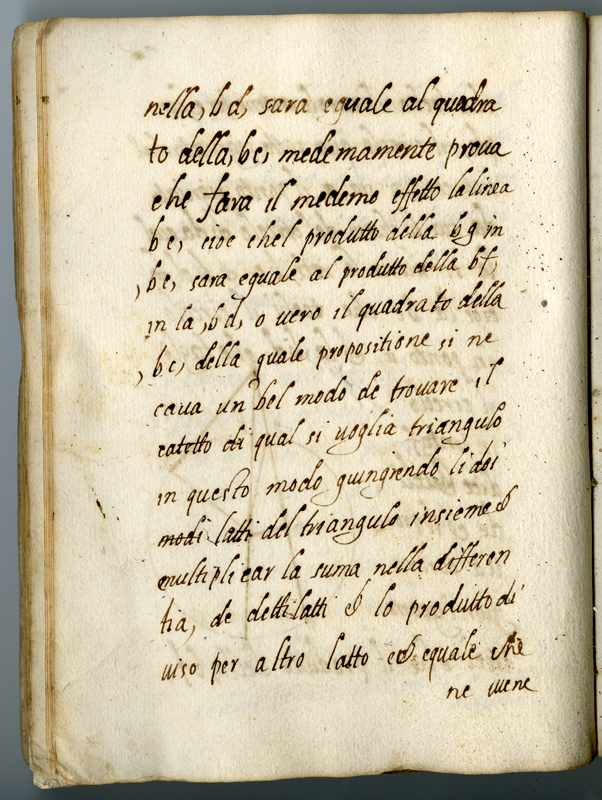 nella, b d, sara equale al quadra
to della, b c, medemamente prova
che fara il medemo effetto la linea
b e, cioe chel produtto della b g in
, b e, sara equale al produtto della b f,
in la, b d, o vero il quadrato della
, b c, della quale propositione si ne
caua un bel modo de trouare il
catetto di qual si voglia triangulo
in questo modo guingendo li doi
modi latti del triangulo insieme &
multiplicar la suma nella differen
tia, de detti latti & lo produtto di
uiso per altro latto & equale che
ne viene